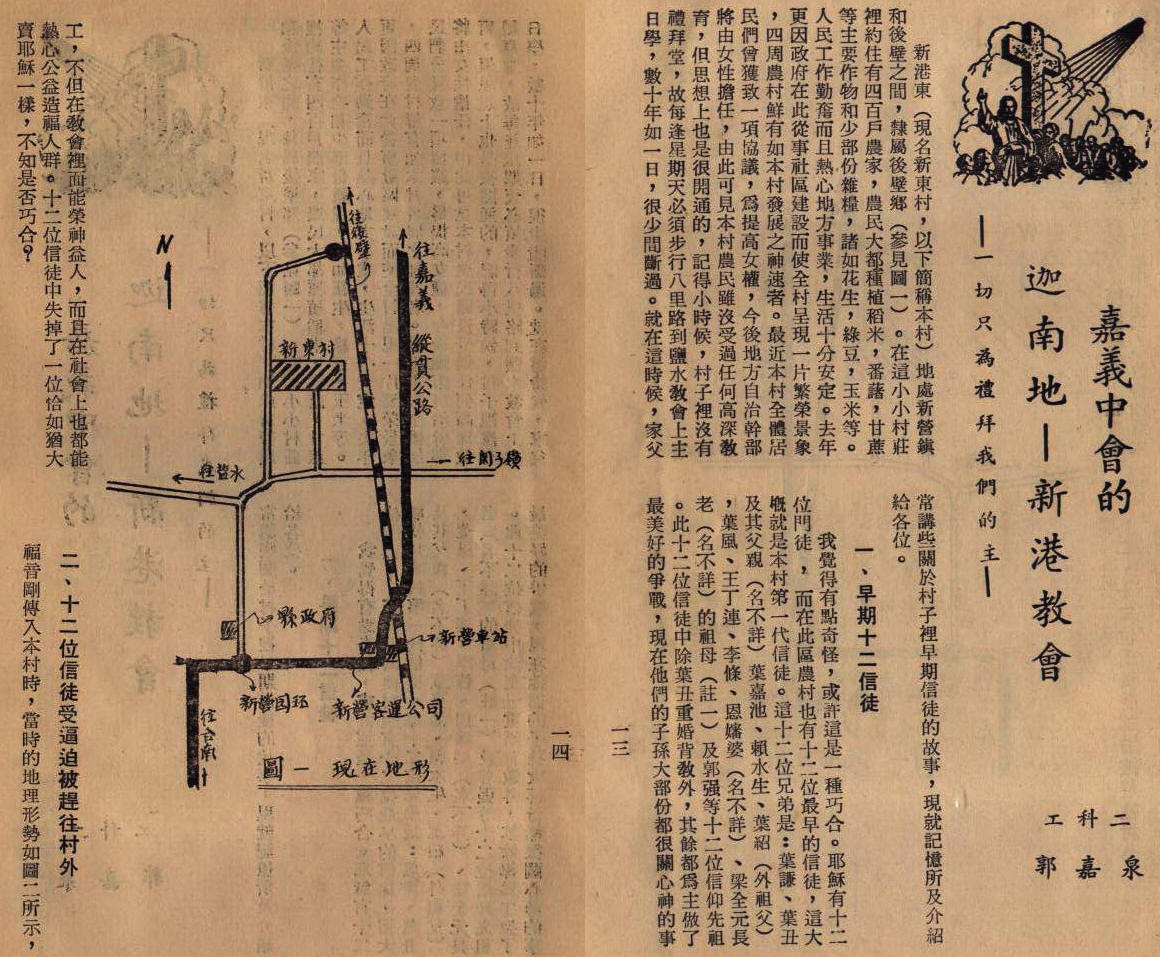 嘉義中會的
迦南地—新港教會
—一切只為禮拜我們的主—
二科工
泉嘉郭
新港東（現名新東村，以下簡稱本村）地處新營鎮
和後壁之間，隸屬後壁鄉（參見圖一）。在這小小村莊
裡約住有四百戶農家，農民大都種植稻米，番藷，甘蔗
等主要作物和少部份雜糧，諸如花生，綠豆，玉米等。
人民工作勤奮而且熱心地方事業，生活十分安定。去年
更因政府在此從事社區建設而使全村呈現一片繁榮景象
，四周農村鮮有如本村發展之神速者。最近本村全體居
民們曾獲致一項協議，為提高女權，今後地方自治幹部
將由女性擔任，由此可見本村農民雖沒受過任何高深教
育，但思想上也是很開通的，記得小時候，村子裡沒有
禮拜堂，故每逢星期天必須步行八里路到鹽水教會上主
日學，數十年如一日，很少間斷過。就在這時候，家父
常講些關於村子裡早期信徒的故事，現就記憶所及介紹
給各位。
一、早期十二信徒
我覺得有點奇怪，或許這是一種巧合。耶穌有十二
位門徒，而在此區農村也有十二位最早的信徒，這大
概就是本村第一代信徒。這十二位兄弟是：葉謙、葉丑
及其父親（名不詳）葉嘉池、賴水生、葉紹（外祖父）
，葉風、王丁連、李條、恩嬸婆（名不詳）、梁全元長
老（名不詳）的祖母（註一）及郭强等十二位信仰先祖
。此十二位信徒中除葉丑重婚背教外，其餘都為主做了
最美好的爭戰，現在他們的子孫大部份都很關心神的事
一三
一四
工，不但在教會裡面能榮神益人，而且在社會上也都能
熱心公益造福人群。十二位信徒中失掉了一位恰如猶大
賣耶穌一樣，不知是否巧合？
N
往後壁
往嘉義
縱貫公路
新東村
往鹽水
往關子嶺
縣政府
新營車站
新營圓环
新營客運公司
往台南
圖一 現在地形
二、十二位信徒受逼迫被趕往村外
福音剛傳入本村時，當時的地理形勢如圖二所示，